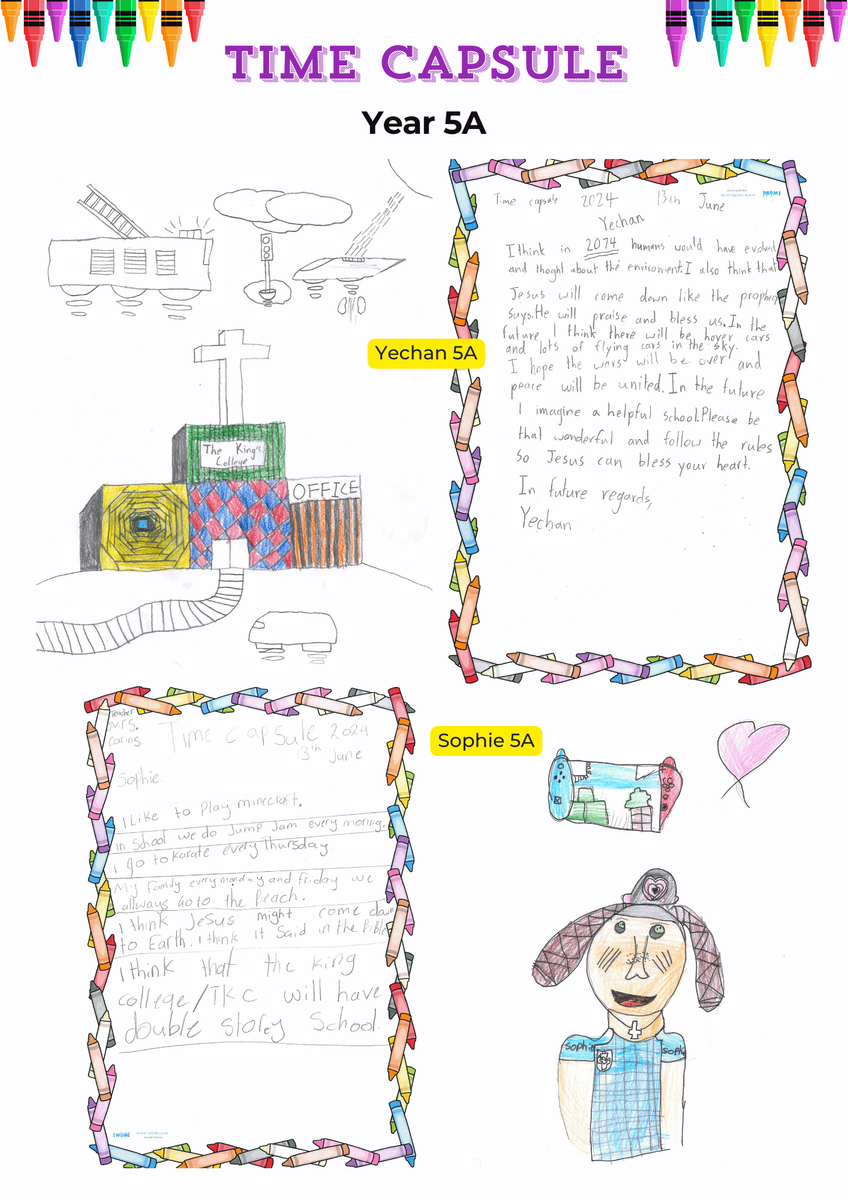 TIME CAPSULE
Year 5A
Time capsule 2024 13th June
Yechan
I think in 2074 humans would have evolved
and thoght about the enviroment. I also think that
Jesus will come down like the prophecy
says. He will praise and bless us. In the
future I think there will be hover cars
and lots of flying cars in the sky.
I hope the wars will be over and
peace will be united. In the future
I imagine a helpful school. Please be
that wonderful and follow the rules
so Jesus can bless your heart.
In future regards,
Yechan
Yechan 5A
The King's
College
OFFICE
Teacher
Mrs.
Time capsule 2024
13th June
Sophie
I Like to Play minecraft.
in School we do Jump Jam every morning.
I go to karate every Thursday
My family every monday and friday we
allways go to the Beach.
I think Jesus might come down
to Earth. I think it Said in the Bible
I think that the king
college/TKC will have
double storey School.
twinkl
Sophie 5A
Sophie
Sophie